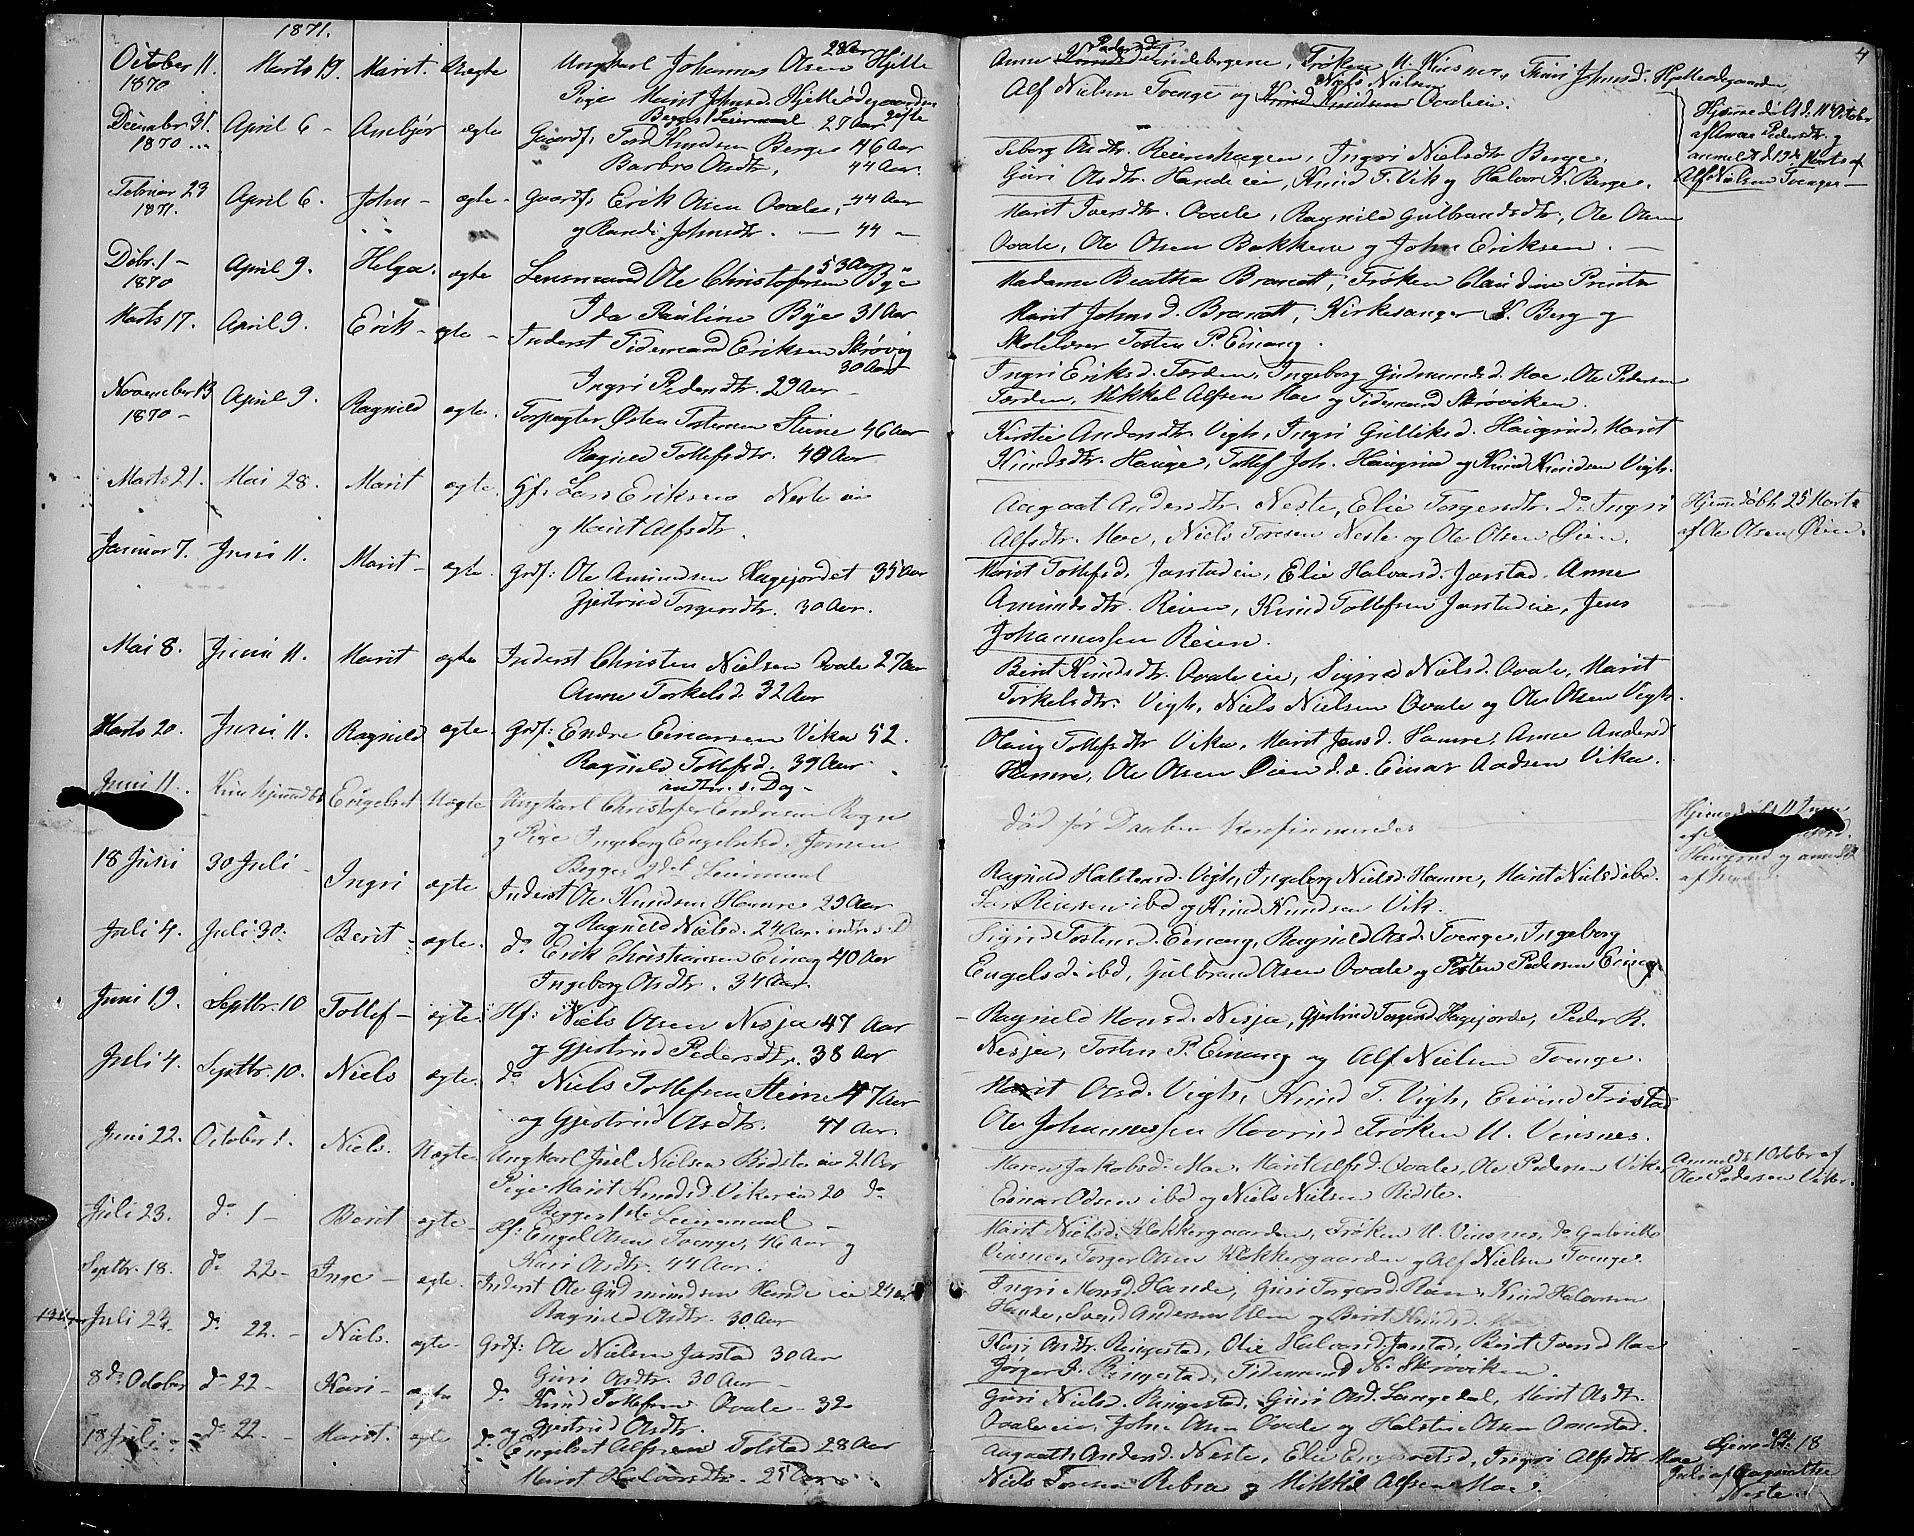 1871.
4
October 11. 1870 Marts 19. Marit. Uægte Ungkarl Johannes Olsen Hjelle 28 Aar
Pige Marit Johnsd. Hjelleødegaarden
Begges 1 Leiermaal 27 Aar gifte
December 31. 1870 April 6 - Ambjør ægte Gaardf. Tord Knudsen Berge 46 Aar
Barbro Olsdtr. 44 Aar.
Februar 23 1871. April 6. John - ægte - Gaardf. Erik Olsen Ovale, 44 Aar
og Randi Johnsdtr. - 44 -
Debr. 1 - 1870 April 9. Helga. ægte Lensmand Ole Christofersen Bye 53 Aar
Ida Pauline Bye 31 Aar
Marts 17. April 9. Erik - ægte - Inderst Tidemand Eriksen Skrøvig
30 Aar
Ingri Pedersdtr. 29 Aar -
November 13 1870 - April 9. Ragnild ægte. Forpagter Østen Tostensen Steine 46 Aar
Ragnild Tollefsdtr. 40 Aar.
Marts 21. Mai 28. Marit ægte. Gf. Lars Eriksen Neste eie
og Marit Alfsdtr.
Januar 7. Juni 11. Marit - ægte. Grdf: Ole Amundsen Hagejordet 35 Aar
Gjertrud Torgersdtr. 30 Aar.
Mai 8. Juni 11. Marit ægte Inderst Christen Nielsen Ovale 27 Aar
Anne Torkelsd. 32 Aar
Marts 20. Juni 11. Ragnild ægte. Grdf: Endre Einarsen Vika 52.
Ragnild Tollefsd. 39 Aar.
Juni 11. Kun hjemmedbt Engebret Uægte Ungkarl Christofer Endresen Rogn
og Pige Ingeborg Engebretsd. Jomen
Begges 2det Leiermaal
18 Juni 30 Juli - Ingri ægte Inderst Ole Knudsen Hamre 29 Aar
og Ragnild Nielsd. 24 Aar.
Juli 4. Juli 30. Berit ægte. do Erik Christiansen Einang 40 Aar
Ingeborg Olsdtr. 34 Aar.
Juni 19. Septbr. 10 Tollef - ægte Hf: Niels Olsen Nesja 47 Aar
og Gjertrud Pedersdtr. 38 Aar
Juli 4. Septbr. 10. Niels ægte do Niels Tollefsen Steine 47 Aar
og Gjertrud Olsdtr. 41 Aar.
Juni 22. October 1. Niels. Uægte. Ungkarl Juel Nielsen Ridste eie 21 Aar
Pige Marit Knudsd. Vikareie 20 do
Begges 1ste Leiermaal -
Juli 23. do 1 - Berit ægte - Hf: Engel Olsen Tvenge, 46 Aar og
Kari Olsdtr. 44 Aar.
Septbr. 18. do 22 - Inge - ægte. Inderst Ole Gudmundsen Hande eie 24 Aar
Ragnild Olsdtr. 30 Aar
Juli 23. do 22. - Niels. ægte - Grdf: Ole Nielsen Jarstad 30 Aar
Guri Olsdtr. 30 Aar -
8de October do 22 - Kari - ægte do Knud Tollefsen Ovale - 32
og Gjertrud Olsdtr.
18 Juli - do 22. - Marit. ægte do Engebret Alfsen Tolstad 28 Aar
Marit Halvorsdtr. 25 Aar
Anne Pedersd. Lindebregene, Frøken U. Vinsnes, Thori Johnsd. Hjelleødegaarden
Alf Nielsen Tvenge og Niels Nielsen Ovaleeie.
Hjemmedøbt d. 11te October
af Anne Pedersdtr. og
anmeldt d. 19de Marts af
Alf Nielsen Tvenge -
Seborg Olsdtr. Reienshagen, Ingri Nielsdtr. Berge,
Guri Olsdtr. Hande eie, Knud T. Vik og Halvor K. Berge.
Marit Iversdtr. Ovale, Ragnild Gulbrandsdtr., Ole Olsen
Ovale, Ole Olsen Bakkene og John Eriksen. -
Madame Beatha Brandt, Frøken Claudine Printz
Marit Johnsd. Brandt, Kirkesanger L. Berg og
Skolelærer Tosten P. Einang.
Ingri Eriksd. Førden, Ingeborg Gudmundsd. Moe, Ole Pedersen
Førden, Mikkel Alfsen Moe og Tidemand Skrøviken.
Kirstie Andersdtr. Vigh, Ingri Gulliksd. Haugrud, Marit
Knudsdtr. Hauge, Tollef Joh. Haugrud og Knud Knudsen Vigh.
Aagaat Andersdtr. Neste, Elie Torgersdtr. do Ingri
Alfsdtr. Moe, Niels Toresen Neste og Ole Olsen Øien.
Hjemmedøbt 25 Marts
af Ole Olsen Øien.
Marit Tollefsd. Jarstadeie, Elie Halvorsd. Jarstad, Anne
Amundsdtr. Reien, Knud Tollefsen Jarstadeie, Jens
Johannessen Reien.
Berit Knudsdtr. Ovaleeie, Sigrid Nielsd. Ovale, Marit
Torkelsdtr. Vigh, Niels Nielsen Ovale og Ole Olsen Vigh.
Olaug Tollefsdtr Vika, Marit Jensd. Hamre, Anne Andersd
Hamre, Ole Olsen Øien d.e. Einar Aadsen Vika.
død før Daaben Konfirmeredes
Ragnild Halstensd. Vigh, Ingeborg Nielsd. Hamre, Marit Nielsd. ibd.
Lars Reiersen ibd og Knud Knudsen Vik.
Sigrid Tostensd. Einang, Ragnild Olsd. Tvenge, Ingeborg
Engelsd. ibd, Gulbrand Olsen Ovale og Tosten Pedersen Einang.
Ragnild Monsd. Nesja, Gjertrud Torgersd. Hagejorde, Peder R.
Nesja, Tosten P. Einang og Alf Nielsen Tvenge.
Marit Olsd. Vigh, Knud T. Vigh, Eivind Fristad
Ole Johannessen Hovrud Frøken U. Vinsnes.
Maren Jakobsd. Moe, Marit Alfsd. Ovale, Ole Pedersen Vika
Einar Odsen ibd og Niels Nielsen Ridste.
Anmeldt 1 Octbr af
Ole Pedersen Vika.
Marit Nielsd. Klokkergaarden, Frøken U. Vinsnes, do Gabrielle
Vinsnes, Torger Olsen Klokkergaarden og Alf Nielsen Tvenge.
Ingri Monsd. Hande, Guri Torgersd. Roen, Knud Halvorsen
Hande, Svend Andersen Ulen og Berit Knudsd.
Kari Olsdtr. Ringestad, Elie Halvorsd. Jarstad, Berit Iversd Moe
Jørger J. Ringestad, Tidemand N. Skrøviken.
Guri Nielsd. Ringestad, Guri Olsd. Langedal, Marit Olsdtr.
Ovaleeie, John Olsen Ovale og Halsten Olsen Omestad.
Aagaath Andersd. Neste, Elie Engebretsd, Ingri Alfsdtr Moe
Niels Toresen Rebra og Mikkel Alfsen Moe.
Hjemmedbt. 18
Juli af Aagaathe
Neste.